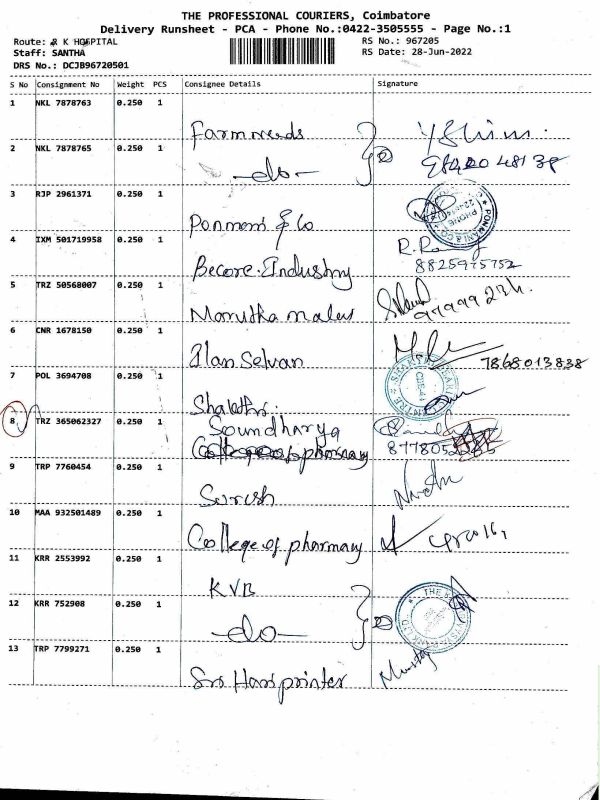 THE PROFESSIONAL COURIERS, Coimbatore
Delivery Runsheet - PCA - Phone No.:0422-3505555 - Page No.:1
Route: R K HOSPITAL RS No.: 967205
Staff: SANTHA RS Date: 28-Jun-2022
DRS No.: DCJB96720501
S No Consignment No Weight PCS Consignee Details Signature
1 NKL 7878763 0.250 1 Farm needs
2 NKL 7878765 0.250 1 -do-
3 RJP 2961371 0.250 1 & Co
4 IXM 501719958 0.250 1 Becore Industry
5 TRZ 50568007 0.250 1
6 CNR 1678150 0.250 1 Ilan Selvan 7868013838
7 POL 3694708 0.250 1 Shakthi
8 TRZ 365062327 0.250 1 Soundharya
9 TRP 7760454 0.250 1 Suresh
10 MAA 932501489 0.250 1 College of pharmacy
11 KRR 2553992 0.250 1 KVB
12 KRR 752908 0.250 1 -do-
13 TRP 7799271 0.250 1 Sri Hari printer